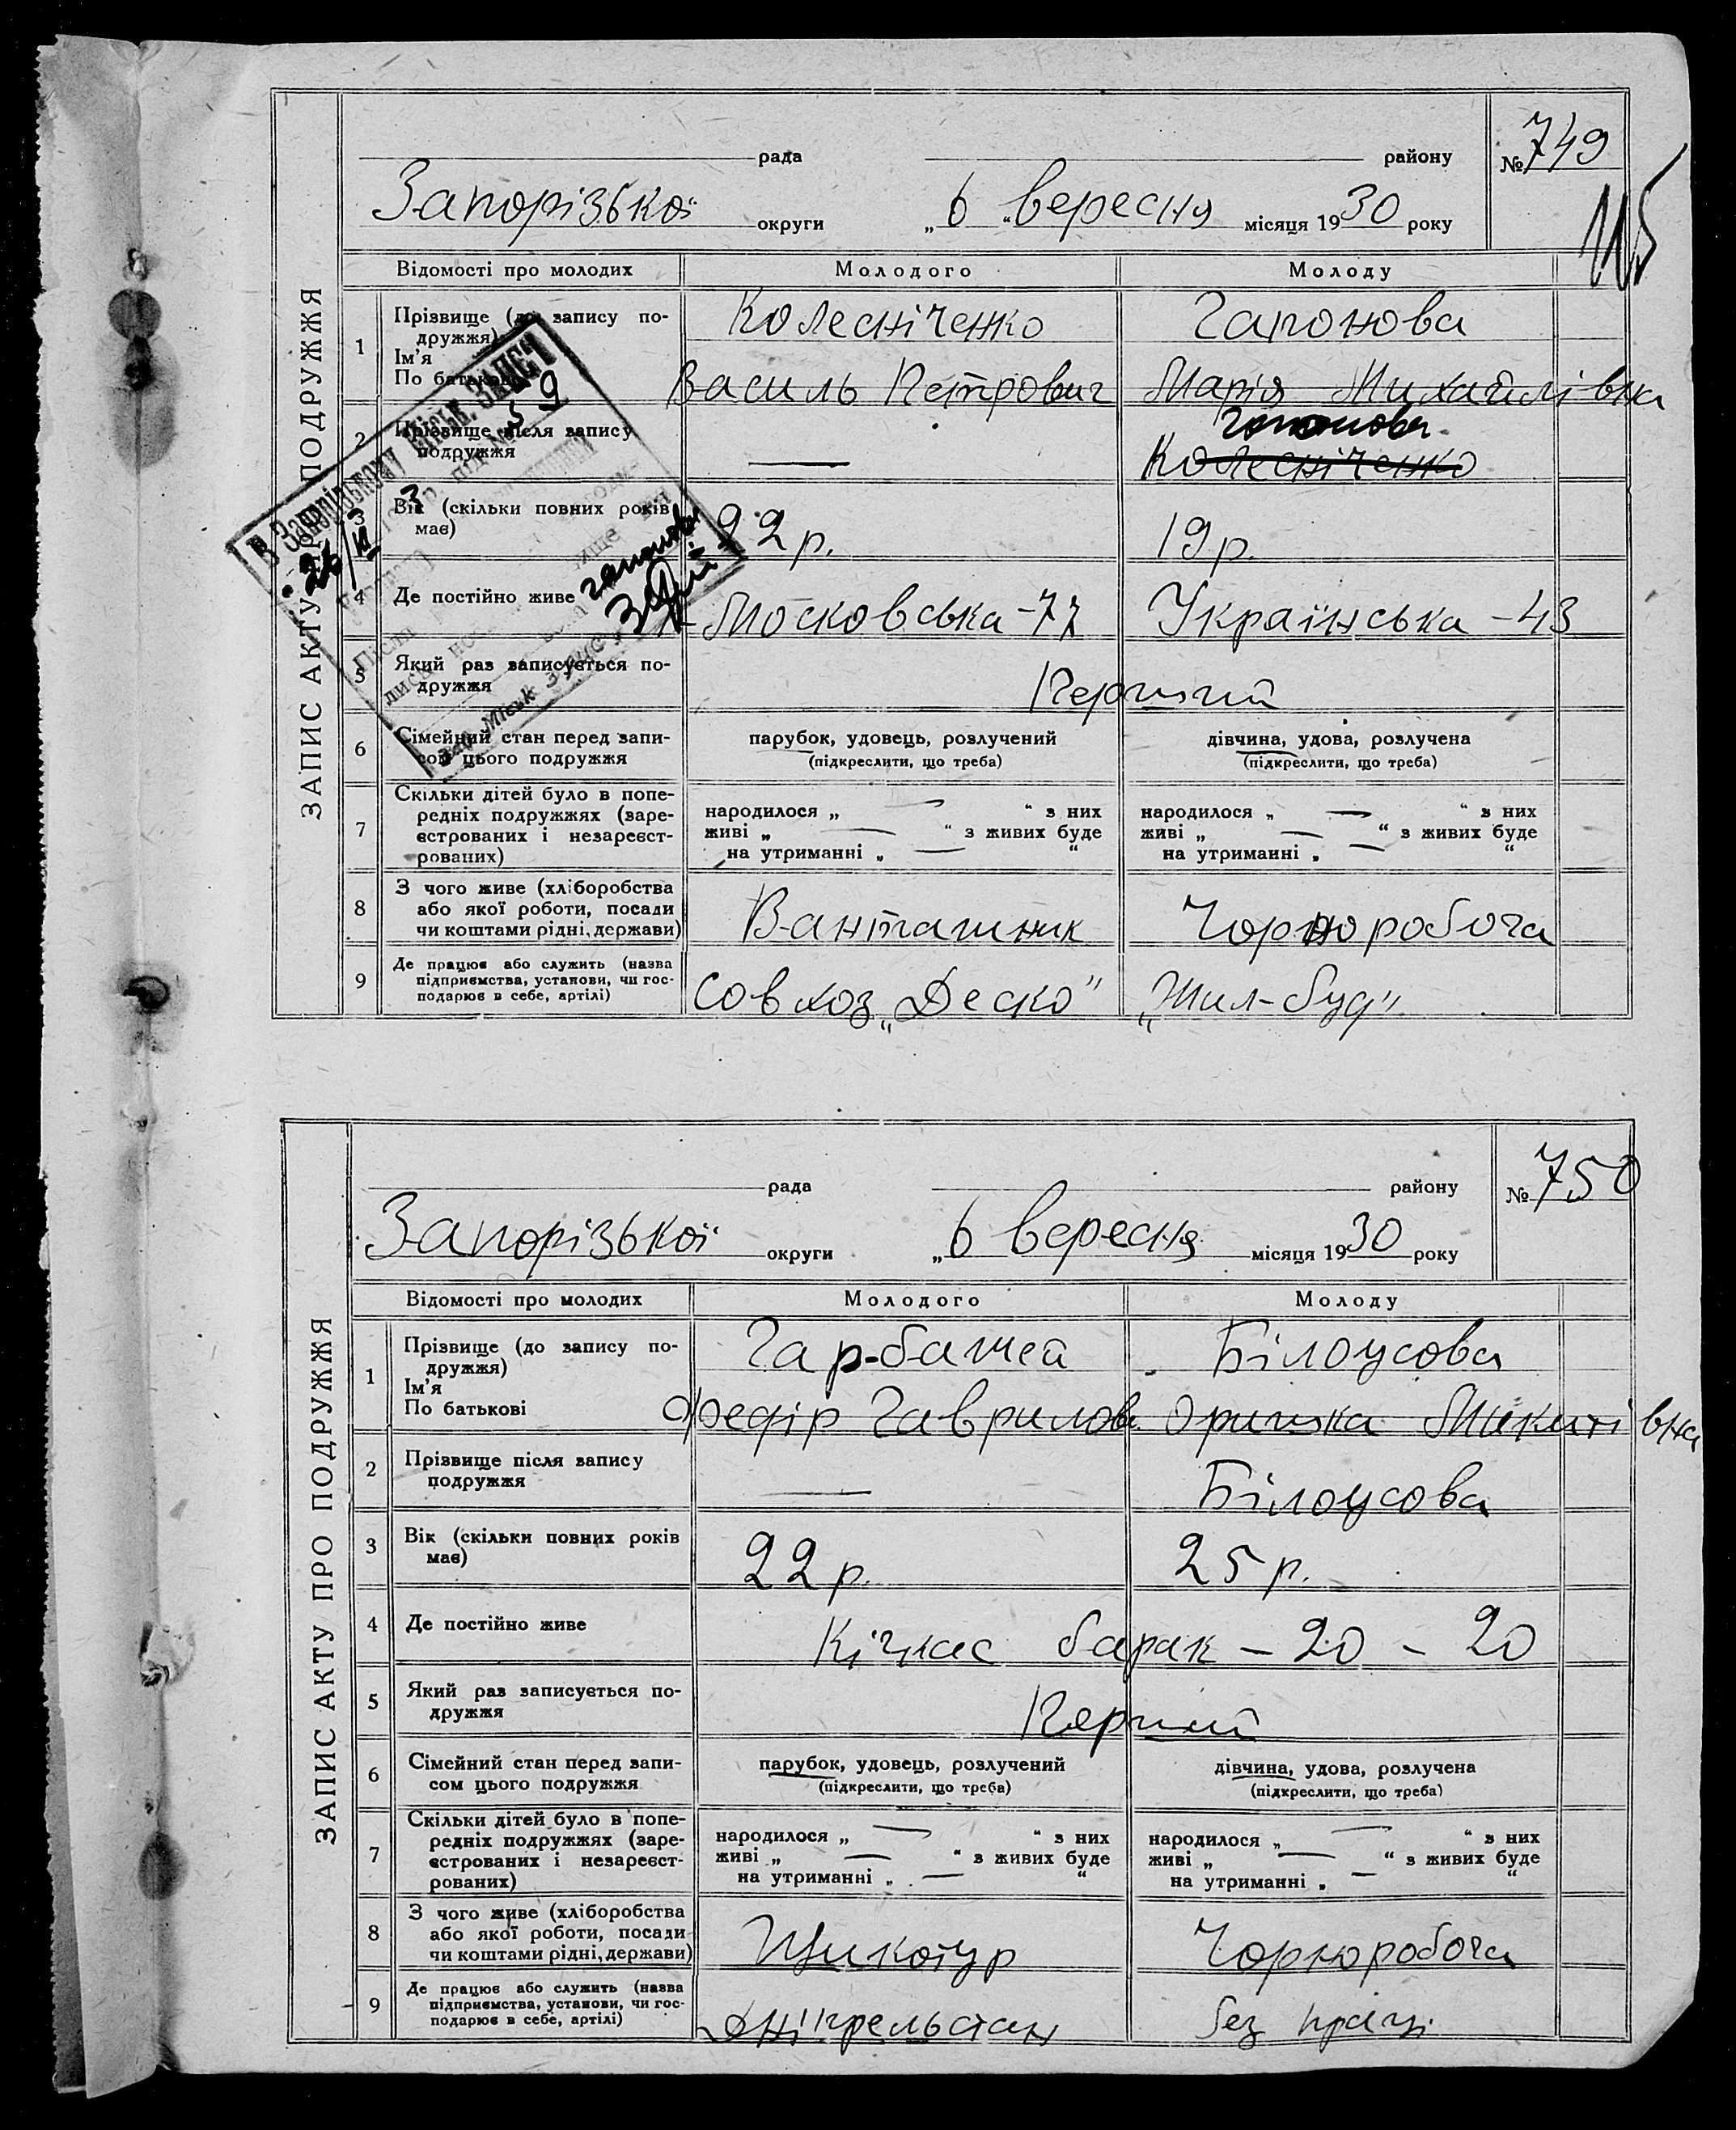 ЗАПИС АКТУ ПРО ПОДРУЖЖЯ
рада району № 749
115
Запорізької округи „6" вересня місяця 1930 року
Відомості про молодих Молодого Молоду
1 Прізвище (до запису по-
дружжя)
Ім'я
По батькові
Колесніченко Гапонова
Василь Петрович Марія Михайлівна
2 Прізвище після запису
подружжя
— Гапонова
Колесніченко
3 Вік (скільки повних років
має)
22 р. 19 р.
4 Де постійно живе
Московська-77 Українська-43
5 Який раз записується по-
дружжя
Перший
6 Сімейний стан перед запи-
сом цього подружжя
парубок, удовець, розлучений дівчина, удова, розлучена
(підкреслити, що треба) (підкреслити, що треба)
7 Скільки дітей було в попе-
редніх подружжях (заре-
єстрованих і незареєст-
рованих)
народилося „ — “ з них народилося „ — “ з них
живі „ — “ з живих буде живі „ — “ з живих буде
на утриманні „ — “ на утриманні „ — “
8 З чого живе (хліборобства
або якої роботи, посади
чи коштами рідні, держави)
Вантажник Чорноробоча
9 Де працює або служить (назва
підприємства, установи, чи гос-
подарює в себе, артілі)
Совхоз „Деско" „Жил-буд"
В Запорізькому Міськ. ЗАГСІ
26/XI
Гапонова
ЗАПИС АКТУ ПРО ПОДРУЖЖЯ
рада району № 750
Запорізької округи „6 вересня місяця 1930 року
Відомості про молодих Молодого Молоду
1 Прізвище (до запису по-
дружжя)
Ім'я
По батькові
Гар-бажей Білоусова
Федір Гаврилов. Оришка Микитівна
2 Прізвище після запису
подружжя
— Білоусова
3 Вік (скільки повних років
має)
22 р. 25 р.
4 Де постійно живе
Кічкас барак - 20 - 20
5 Який раз записується по-
дружжя
Перший
6 Сімейний стан перед запи-
сом цього подружжя
парубок, удовець, розлучений дівчина, удова, розлучена
(підкреслити, що треба) (підкреслити, що треба)
7 Скільки дітей було в попе-
редніх подружжях (заре-
єстрованих і незареєст-
рованих)
народилося „ — “ з них народилося „ — “ з них
живі „ — “ з живих буде живі „ — “ з живих буде
на утриманні „ — “ на утриманні „ — “
8 З чого живе (хліборобства
або якої роботи, посади
чи коштами рідні, держави)
Щикотур Чорноробоча
9 Де працює або служить (назва
підприємства, установи, чи гос-
подарює в себе, артілі)
Дніпрельстан без праці